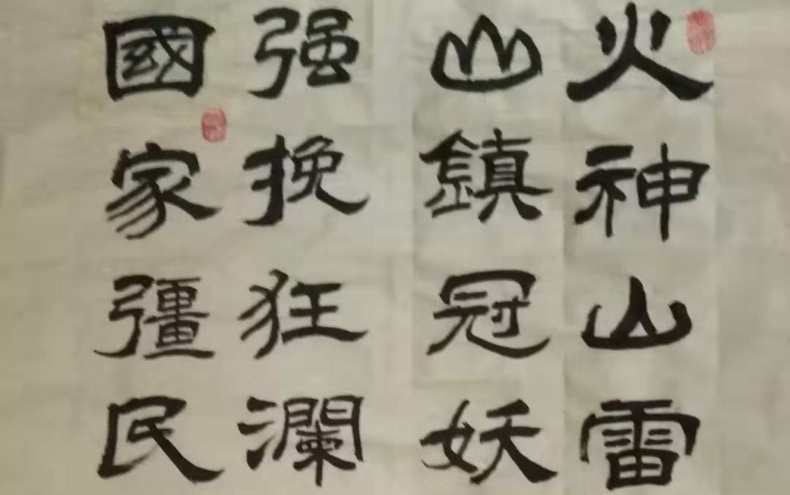 火神山雷
山鎮冠妖
强挽狂瀾
國家彊民